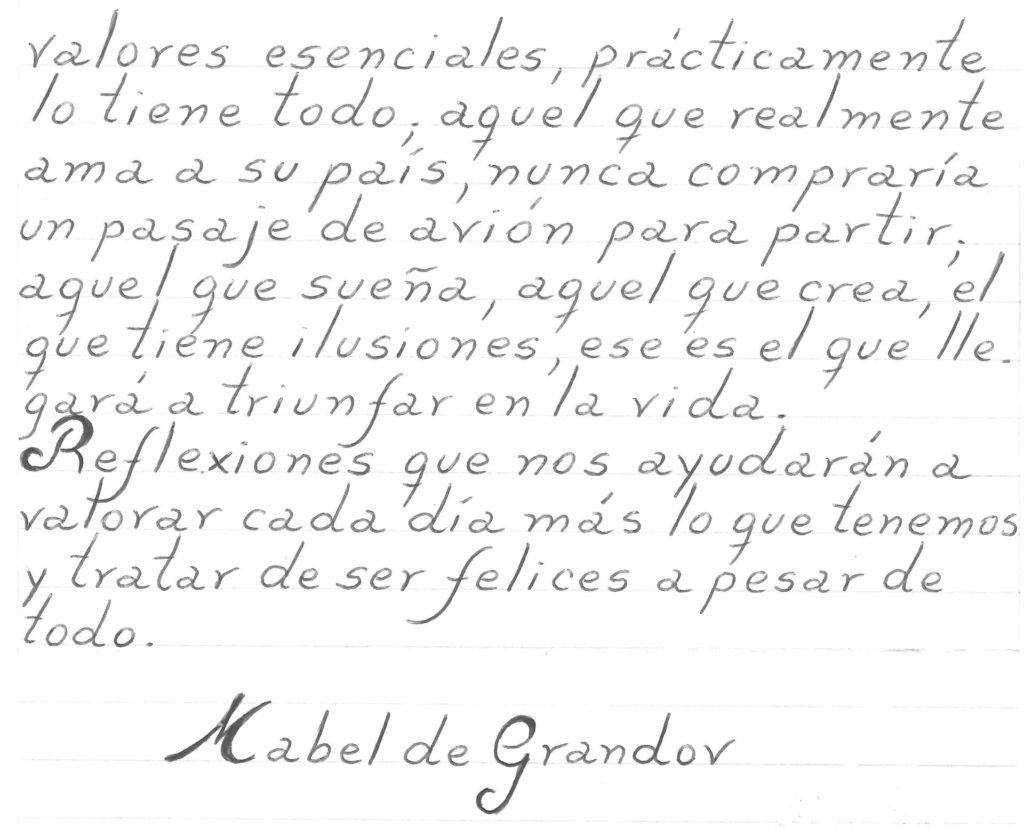 valores esenciales, prácticamente
lo tiene todo; aquel que realmente
ama a su país, nunca compraría
un pasaje de avión para partir;
aquel que sueña, aquel que crea, el
que tiene ilusiones, ese es el que lle-
gará a triunfar en la vida.
Reflexiones que nos ayudarán a
valorar cada día más lo que tenemos
y tratar de ser felices a pesar de
todo.
Mabel de Grandov